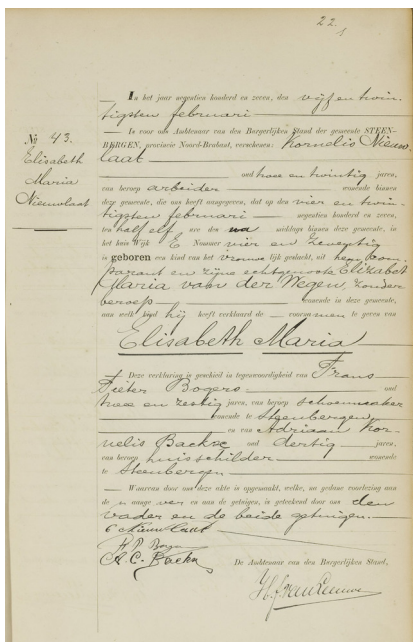 22.
1
In het jaar negentien honderd en zeven, den vijf en twin-
tigsten februari
Is voor ons Ambtenaar van den Burgerlijken Stand der gemeente STEEN-
BERGEN, provincie Noord-Brabant, verschenen: Kornelis Nieuw
laat
oud twee en twintig jaren,
van beroep arbeider wonende binnen
deze gemeente, die ons heeft aangegeven, dat op den vier en twin-
tigsten februari negentien honderd en zeven,
ten half elf ure des na middags binnen deze gemeente, in
het huis Wijk E Nummer vier en zeventig
is geboren een kind van het vrouwelijk geslacht, uit hem com-
parant en zijne echtgenoote Elizabet
Maria van der Wegen, zonder
beroep wonende in deze gemeente,
aan welk kind hij heeft verklaard de voornamen te geven van
Elisabeth Maria
Deze verklaring is geschied in tegenwoordigheid van Frans
Pieter Bogers oud
twee en zestig jaren, van beroep schoenmaker
wonende te Steenbergen
en van Adriaan Kor-
nelis Backx oud dertig jaren,
van beroep huisschilder wonende
te Steenbergen
Waarvan door ons deze akte is opgemaakt, welke, na gedane voorlezing aan
de n aangever en aan de getuigen, is geteekend door ons den
vader en de beide getuigen.
C Nieuwlaat
F. P. Bogers
A. C. Backx
De Ambtenaar van den Burgerlijken Stand,
van Leeuwen
No 43.
Elisabeth
Maria
Nieuwlaat